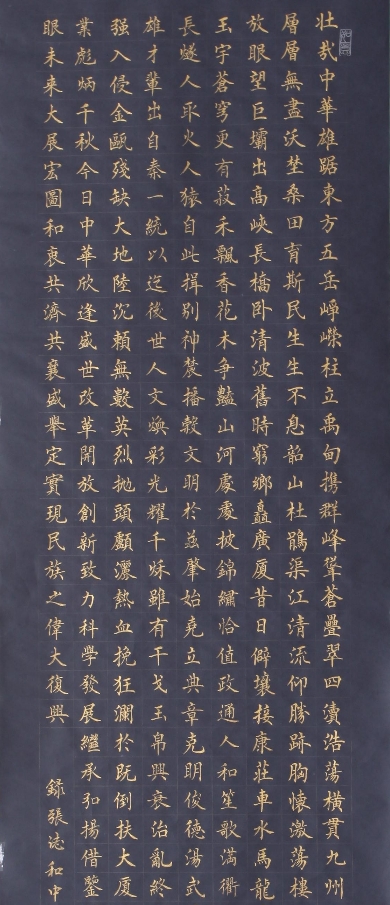 壯哉中華雄踞東方五岳崢嶸柱立禹甸携群峰聳蒼疊翠四瀆浩蕩橫貫九州
層層無盡沃埜桑田育斯民生生不息韶山杜鵑渠江清流仰勝跡胸懷激蕩樓
放眼望巨壩出高峽長橋卧清波舊時窮鄉矗廣厦昔日僻壤接康莊車水馬龍
玉宇蒼穹更有菽禾飄香花木争豔山河處處披錦繡恰值政通人和笙歌滿衢
長燧人取火人猿自此揖别神農播穀文明於兹肇始堯立典章克明俊德湯武
雄才輩出自秦一統以迄後世人文煥彩光耀千秌雖有干戈玉帛興衰治亂終
强入侵金甌殘缺大地陸沉賴無數英烈抛頭顱灑熱血挽狂瀾於既倒扶大厦
業彪炳千秋今日中華欣逢盛世改革開放創新致力科學發展繼承弘揚借鑒
眼未來大展宏圖和衷共濟共襄盛舉定實現民族之偉大復興
録張志和中